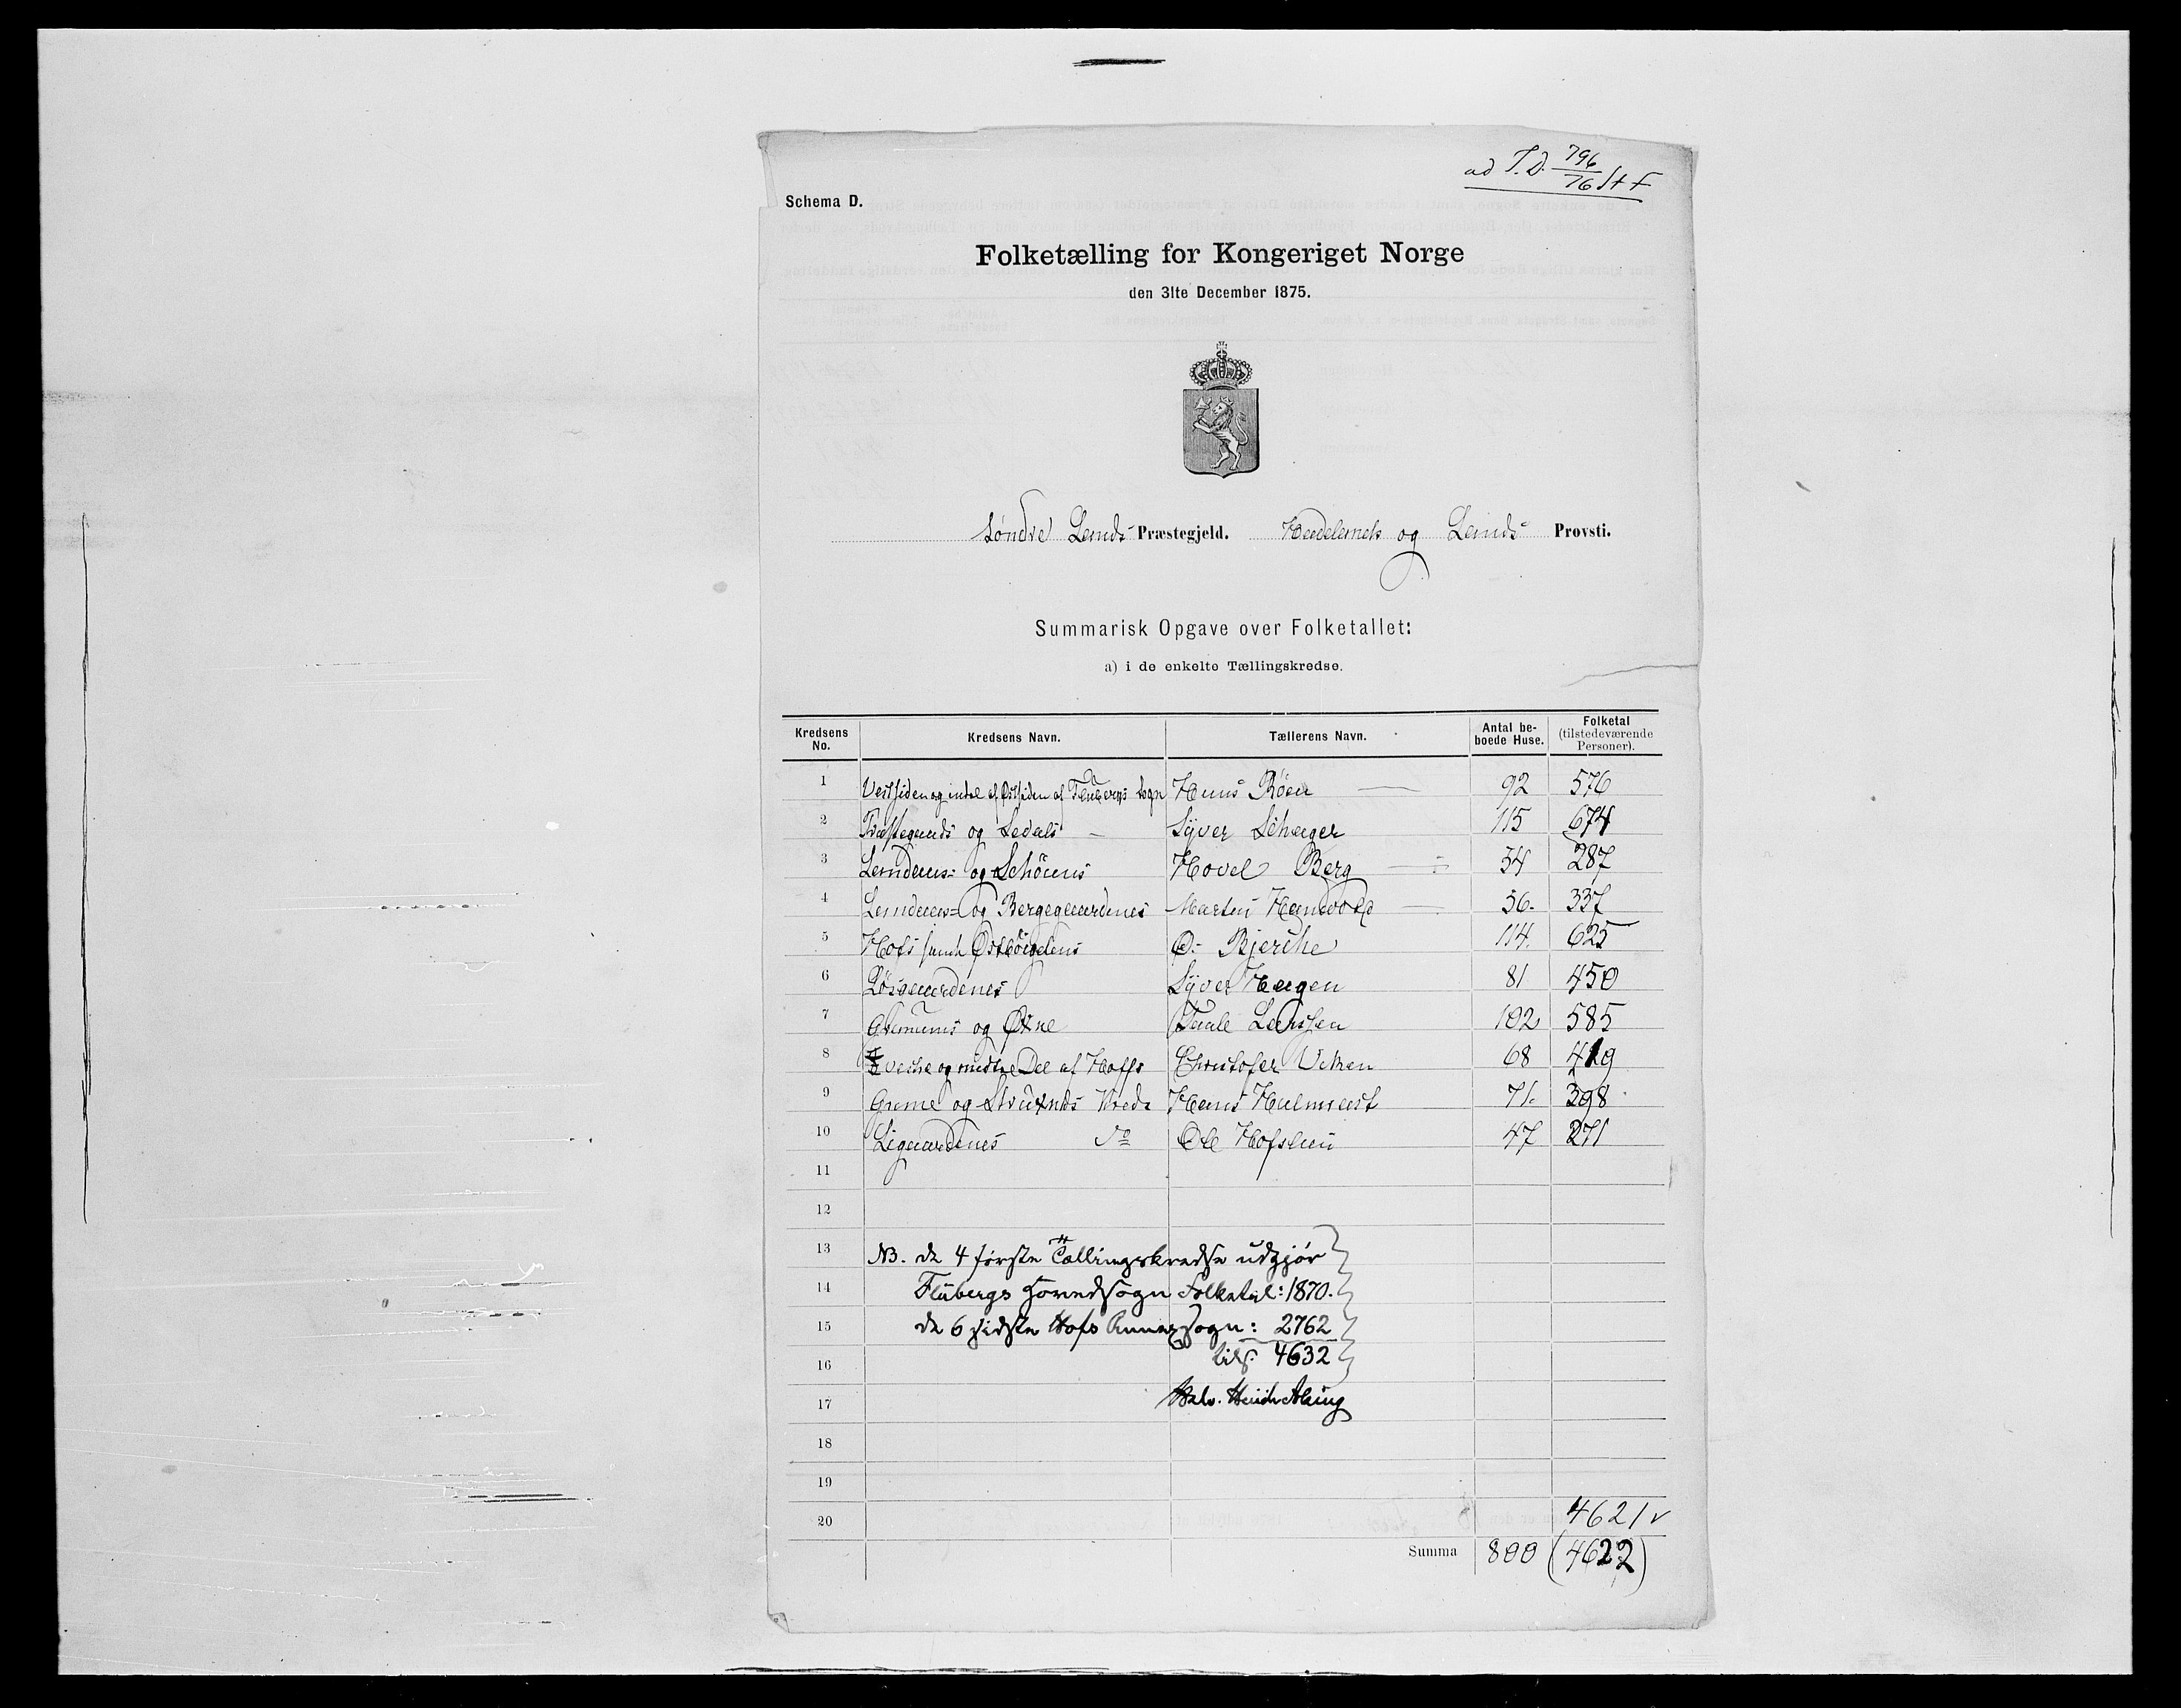 ad T.D. 796/76 St F
Schema D.
Folketælling for Kongeriget Norge
den 31te December 1875.
Søndre Lands Præstegjeld. Hadelands og Lands Provsti.
Summarisk Opgave over Folketallet:
a) i de enkelte Tællingskredse.
Kredsens No. Kredsens Navn. Tællerens Navn. Antal beboede Huse. Folketal (tilstedeværende Personer).
1 Vestsiden og indel af Østsiden af Flubergs Sogn Hans Röen 92 576
2 og Sedals Syver 115 674
3 Landaas- og Schöiens Hovel Berg 54 287
4 Landaas- og Bergegaardenes Martin 56. 337
5 Hofs samt O. Bjerche 114. 625
6 Rösgaardenes Syver Hagen 81 450
7 og Østre Paale Larssen 102 585
8 Vestre og midtre Del af Hoffs Christofer 68 419
9 Grime og Kreds Hans 71. 398
10 Ligaardenes do Ole Hofslien 47 271
11
12
13 NB. de 4 første Tællingskredse udgjør
14 Flubergs Hovedsogn Folketal: 1870.
15 de 6 sidste Hofs Annexsogn: 2762
16 tils. 4632
17
18
19
20 4621
Summa 800 (4622)